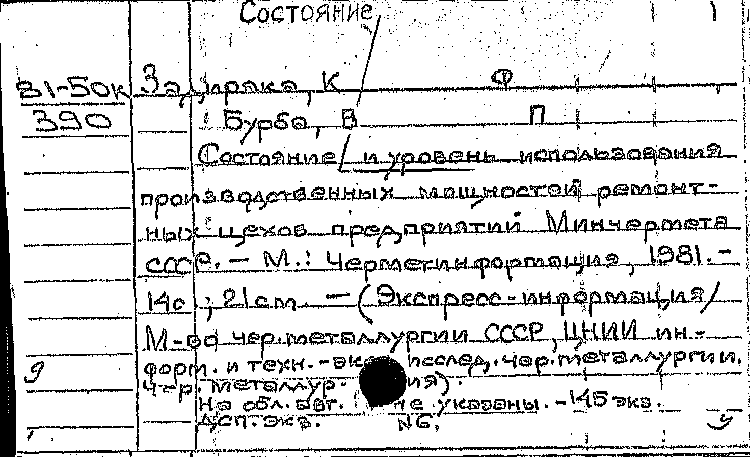 Состояние
81-50к Задиряка, К Ф
390 Бурба, В П
Состояние/ и уровень использования
производственных мощностей ремонт-
ных цехов предприятий Минчермета
СССР. — М.: Черметинформация, 1981. –
14с.; 21см. — (Экспресс-информация/
М-во чер. металлургии СССР, ЦНИИ ин-
форм. и техн.-экон исслед. чер. металлургии.
9 чер. металлур. ия).
На обл. авт. не указаны. – 145 экз.
Дсп. экз. №6.